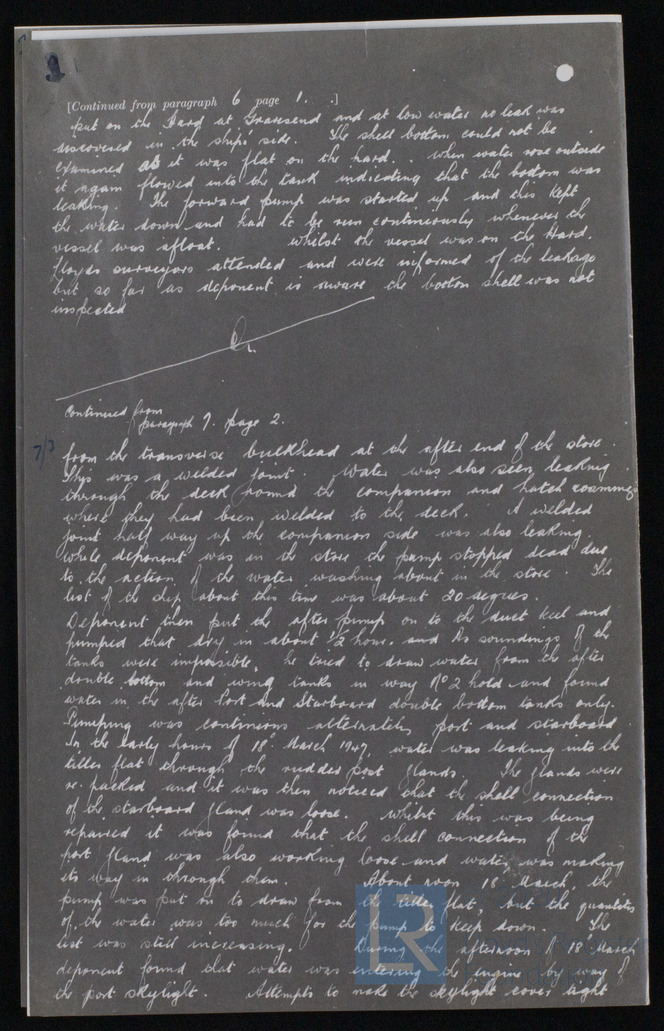 [Continued from paragraph 6 page 1. .]
put on the Hard at Gravesend and at low water no leak was
discovered in the ship's side. The shell bottom could not be
examined as it was flat on the hard. . when water rose outside
it again flowed into the tank indicating that the bottom was
leaking. The forward pump was started up and this kept
the water down and had to be run continuously whenever the
vessel was afloat. Whilst the vessel was on the Hard,
Lloyds surveyors attended and were informed of the leakage
but so far as deponent is aware the bottom shell was not
inspected
continued from
paragraph 7. page 2.
7/3
from the transverse bulkhead at the after end of the store.
This was a welded joint. Water was also seen leaking
through the deck round the companion and hatch coamings
where they had been welded to the deck. A welded
joint half way up the companion side was also leaking.
while deponent was in the store the pump stopped dead due
to the action of the water washing about in the store. The
list of the ship about this time was about 20 degrees.
Deponent then put the after pump on to the duct keel and
pumped that dry in about 1/2 hour. and As soundings of the
tanks were impossible, he tried to draw water from the after
double bottom and wing tanks in way No 2 hold and found
water in the after Port and Starboard double bottom tanks only.
Pumping was continuous alternately port and starboard.
In the early hours of 18th March 1947, water was leaking into the
tiller flat through the rudder post glands. The glands were
re-packed and it was then noticed that the shell connection
of the starboard gland was loose. Whilst this was being
repaired it was found that the shell connection of the
port gland was also working loose and water was making
its way in through them. About noon 18 March, the
pump was put on to draw from the tiller flat, but the quantities
of the water was too much for the pump to keep down. The
list was still increasing. During the afternoon of 18 March
deponent found that water was entering the engine by way of
the port skylight. Attempts to make the skylight cover tight
LR